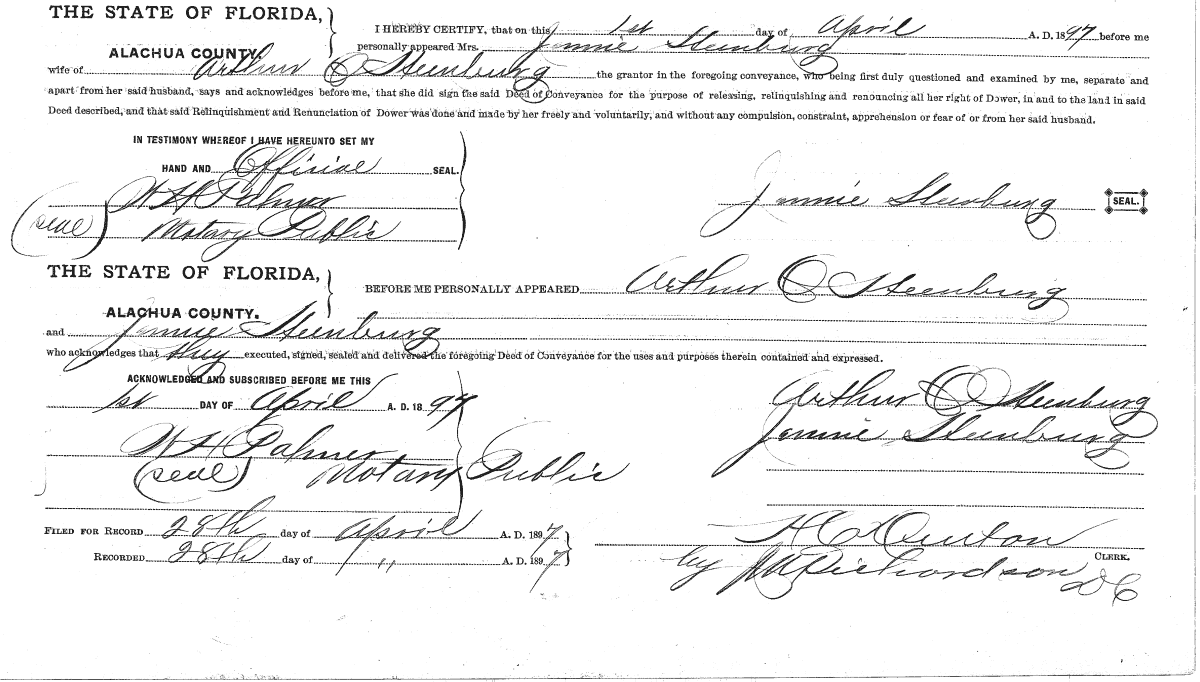 THE STATE OF FLORIDA,
ALACHUA COUNTY.
I HEREBY CERTIFY, that on this 1st day of April A. D. 1897 before me
personally appeared Mrs. Jennie Steenburg
wife of Arthur O Steenburg the grantor in the foregoing conveyance, who being first duly questioned and examined by me, separate and
apart from her said husband, says and acknowledges before me, that she did sign the said Deed of Conveyance for the purpose of releasing, relinquishing and renouncing all her right of Dower, in and to the land in said
Deed described, and that said Relinquishment and Renunciation of Dower was done and made by her freely and voluntarily, and without any compulsion, constraint, apprehension or fear of or from her said husband.
IN TESTIMONY WHEREOF I HAVE HEREUNTO SET MY
HAND AND Official SEAL.
W H Palmer
(seal) Notary Public
Jennie Steenburg SEAL.
THE STATE OF FLORIDA,
ALACHUA COUNTY.
BEFORE ME PERSONALLY APPEARED Arthur O Steenburg
and Jennie Steenburg
who acknowledges that they executed, signed, sealed and delivered the foregoing Deed of Conveyance for the uses and purposes therein contained and expressed.
ACKNOWLEDGED AND SUBSCRIBED BEFORE ME THIS
1st DAY OF April A. D. 1897
W H Palmer
(seal) Notary Public
Arthur O Steenburg
Jennie Steenburg
FILED FOR RECORD 28th day of April A. D. 1897
RECORDED 28th day of " A. D. 1897
H C Denton CLERK.
by Richardson D C